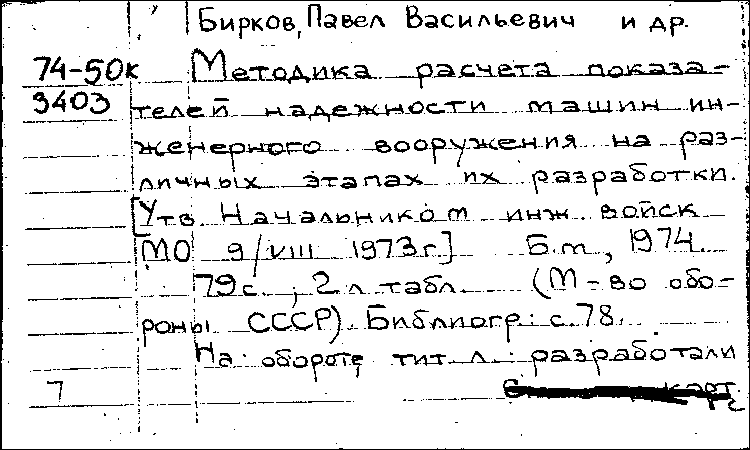 Бирков, Павел Васильевич и др.
74-50к Методика расчета показа-
3403 телей надежности машин ин-
женерного вооружения на раз-
личных этапах их разработки.
[Утв Начальником инж. войск
МО 9/VIII 1973г] Б.м, 1974.
79с. ; 2 л табл. (М-во обо-
роны СССР). Библиогр: с.78.
На обороте тит л.: разработали
7